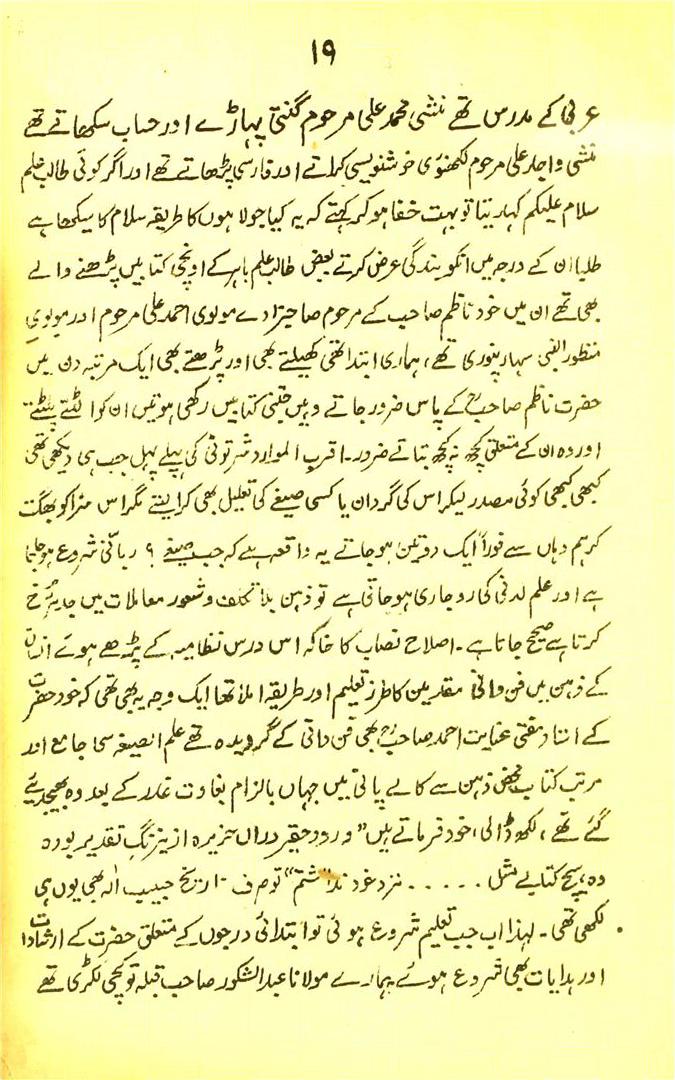 ۱۹
عربی کے مدرس تھے منشی محمد علی مرحوم گنتی پہاڑے اور حساب سکھاتے تھے
منشی واجد علی مرحوم لکھنوی خوشنویسی کراتے اور فارسی پڑھاتے تھے اور اگر کوئی طالب علم
سلام علیکم کہہ دیتا تو بہت خفا ہو کر کہتے کہ یہ کیا جولاہوں کا طریقہ سلام کا سیکھا ہے
طلبا ان کے درجہ میں انکو بندگی عرض کرتے بعض طالب علم باہر کے اونچی کتابیں پڑھنے والے
بھی تھے ان میں خود ناظم صاحب کے مرحوم صاحبزادے مولوی احمد علی مرحوم اور مولوی
منظور النبی سہارنپوری تھے، ہماری ابتدا تھی کھیلتے بھی اور پڑھتے بھی ایک مرتبہ دن میں
حضرت ناظم صاحبؒ کے پاس ضرور جاتے وہیں جتنی کتابیں رکھی ہوتیں ان کو الٹتے پلٹتے
اور وہ ان کے متعلق کچھ نہ کچھ بتاتے ضرور۔ اقرب الموارد شرتونی کی پہلے پہل جب ہی دیکھی تھی
کبھی کبھی کوئی مصدر لیکر اس کی گردان یا کسی صیغے کی تعلیل بھی کرا لیتے مگر اس سزا کو بھگت
کر ہم وہاں سے فوراً ایک دو تین ہو جاتے یہ واقعہ ہے کہ جب ربانی شروع ہو جاتا
ہے اور علم لدنی کی رو جاری ہو جاتی ہے تو ذہن بلا تکلف و شعور معاملات میں جدھر رخ
کرتا ہے صحیح جاتا ہے۔ اصلاح نصاب کا خاکہ اس درس نظامیہ کے پڑھے ہوئے انسان
کے ذہن میں فن وائی متقدمین کا طرز تعلیم اور طریقہ املا تھا ایک وجہ یہ بھی تھی کہ خود حضرت
کے استاد مفتی عنایت احمد صاحبؒ بھی فن دانی کے گرویدہ تھے علم الصیغہ سی جامع اور
مرتب کتاب محض ذہن سے کالے پانی میں جہاں بالزام بغاوت غدر کے بعد وہ بھیجدیئے
گئے تھے، لکھ ڈالی، خود فرماتے ہیں "ورود حقیر دراں جزیرہ از نیرنگ تقدیر بودہ
وہ ہیچ کتابے مثل . . . . . نزد خود نداشتم" تو صرف تاریخ حبیب الٰہ بھی یوں ہی
لکھی تھی۔ لہذا اب جب تعلیم شروع ہوئی تو ابتدائی درجوں کے متعلق حضرت کے ارشادات
اور ہدایات بھی شروع ہوئے ہمارے مولانا عبدالشکور صاحب قبلہ تو کچی لکڑی تھے